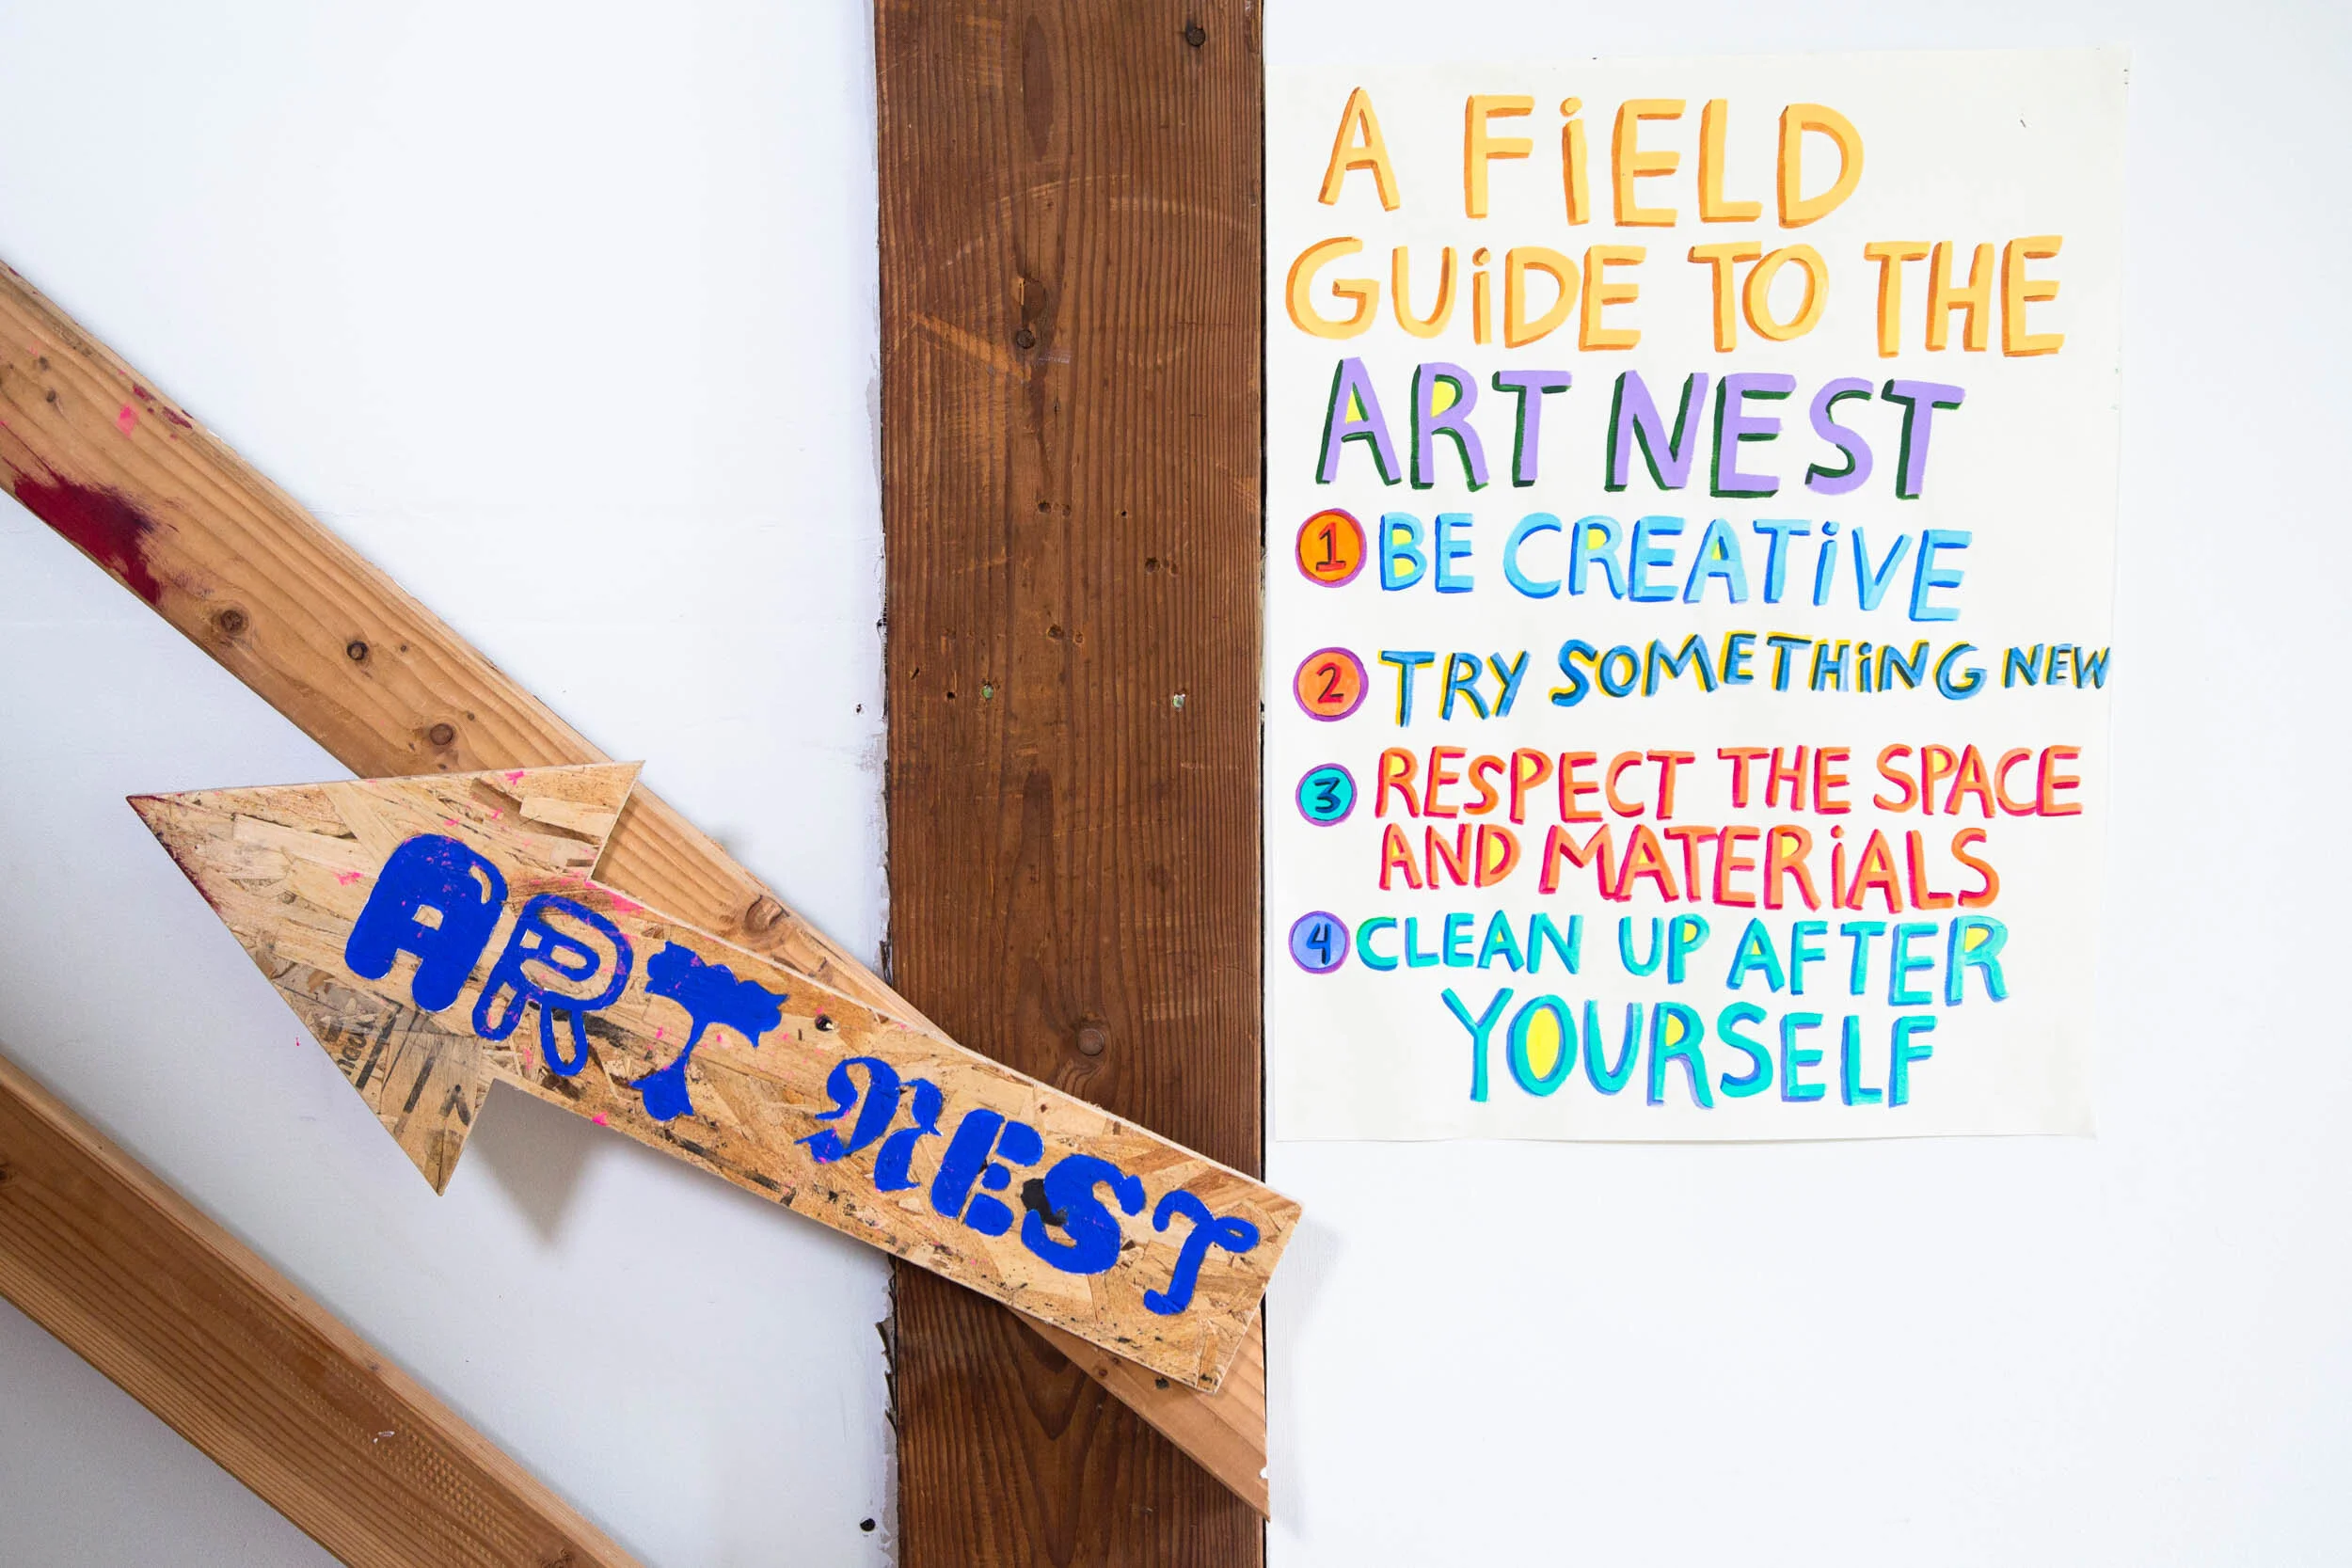 A FiELD
GUiDE TO THE
ART NEST
1 BE CREATiVE
2 TRY SOMETHiNG NEW
3 RESPECT THE SPACE
AND MATERiALS
4 CLEAN UP AFTER
YOURSELF
ART NEST